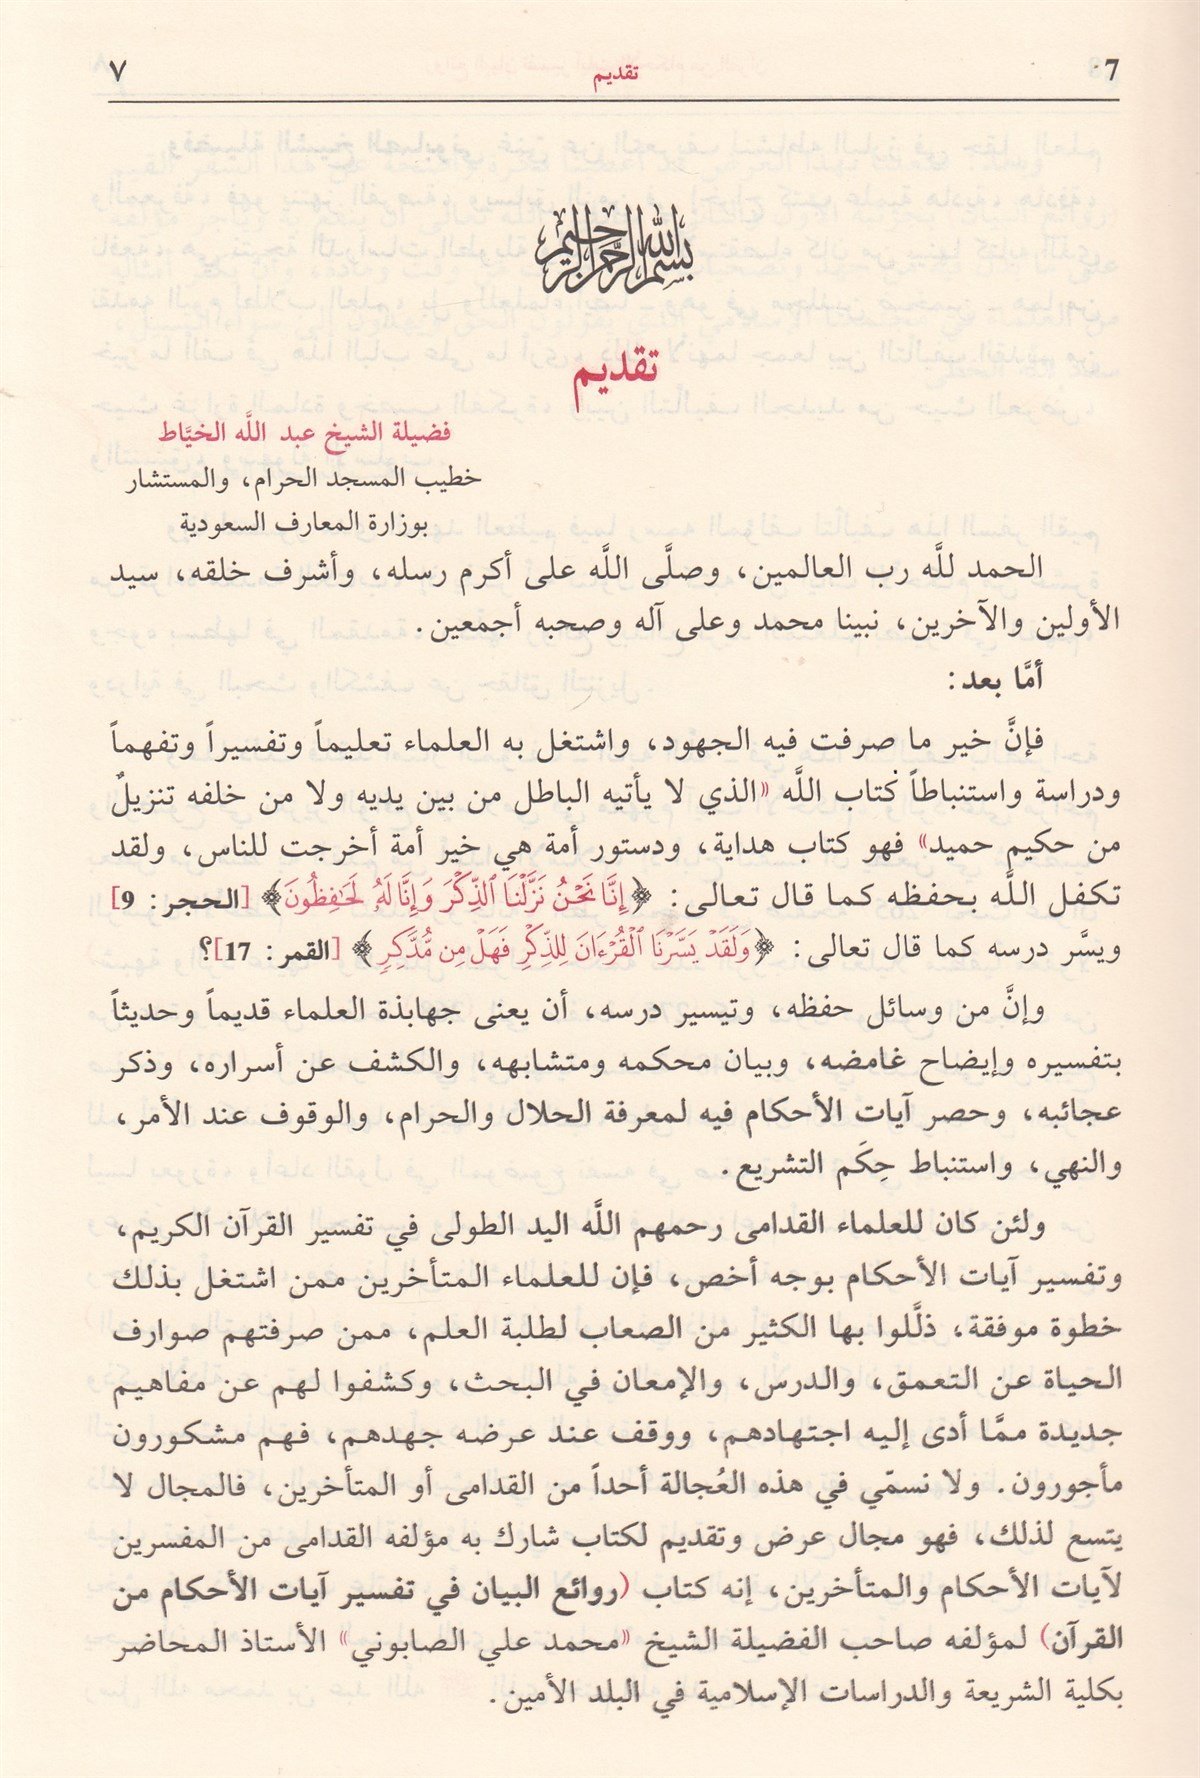 7 تقديم ٧
بسم الله الرحمن الرحيم
تقديم
فضيلة الشيخ عبد اللَّه الخيَّاط
خطيب المسجد الحرام، والمستشار
بوزارة المعارف السعودية
الحمد للَّه رب العالمين، وصلَّى اللَّه على أكرم رسله، وأشرف خلقه، سيد
الأولين والآخرين، نبينا محمد وعلى آله وصحبه أجمعين.
أمَّا بعد:
فإنَّ خير ما صرفت فيه الجهود، واشتغل به العلماء تعليماً وتفسيراً وتفهماً
ودراسة واستنباطاً كتاب اللَّه «الذي لا يأتيه الباطل من بين يديه ولا من خلفه تنزيلٌ
من حكيم حميد» فهو كتاب هداية، ودستور أمة هي خير أمة أخرجت للناس، ولقد
تكفل اللَّه بحفظه كما قال تعالى: ﴿إِنَّا نَحْنُ نَزَّلْنَا ٱلذِّكْرَ وَإِنَّا لَهُۥ لَحَـٰفِظُونَ﴾ [الحجر: 9]
ويسَّر درسه كما قال تعالى: ﴿وَلَقَدْ يَسَّرْنَا ٱلْقُرْءَانَ لِلذِّكْرِ فَهَلْ مِن مُّدَّكِرٍ﴾ [القمر: 17]؟
وإنَّ من وسائل حفظه، وتيسير درسه، أن يعنى جهابذة العلماء قديماً وحديثاً
بتفسيره وإيضاح غامضه، وبيان محكمه ومتشابهه، والكشف عن أسراره، وذكر
عجائبه، وحصر آيات الأحكام فيه لمعرفة الحلال والحرام، والوقوف عند الأمر،
والنهي، واستنباط حِكَم التشريع.
ولئن كان للعلماء القدامى رحمهم اللَّه اليد الطولى في تفسير القرآن الكريم،
وتفسير آيات الأحكام بوجه أخص، فإن للعلماء المتأخرين ممن اشتغل بذلك
خطوة موفقة، ذلَّلوا بها الكثير من الصعاب لطلبة العلم، ممن صرفتهم صوارف
الحياة عن التعمق، والدرس، والإمعان في البحث، وكشفوا لهم عن مفاهيم
جديدة ممَّا أدى إليه اجتهادهم، ووقف عند عرضه جهدهم، فهم مشكورون
مأجورون. ولا نسمّي في هذه العُجالة أحداً من القدامى أو المتأخرين، فالمجال لا
يتسع لذلك، فهو مجال عرض وتقديم لكتاب شارك به مؤلفه القدامى من المفسرين
لآيات الأحكام والمتأخرين، إنه كتاب (روائع البيان في تفسير آيات الأحكام من
القرآن) لمؤلفه صاحب الفضيلة الشيخ «محمد علي الصابوني» الأستاذ المحاضر
بكلية الشريعة والدراسات الإسلامية في البلد الأمين.